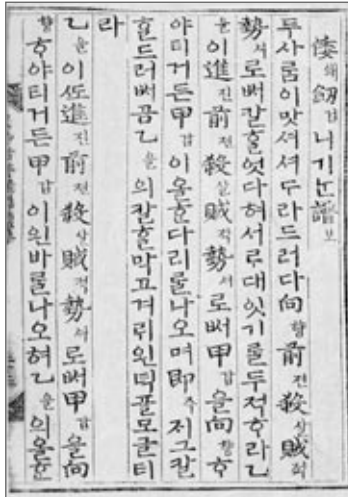 倭왜劒검니기ᄂᆞᆫ譜보
두사ᄅᆞᆷ이맛셔셔ᄃᆞ라드러다向향前젼殺살賊적
勢셔로ᄡᅥ칼ᄒᆞᆯ엇다혀서ᄅᆞ대잇기ᄅᆞᆯ두적ᄒᆞ라乙
을이進진前젼殺살賊적勢셔로ᄡᅥ甲갑을向향ᄒᆞ
야티거든甲갑이올ᄒᆞᆫ다리ᄅᆞᆯ나오며即즉제그칼
ᄒᆞᆯ드러ᄡᅥ곰乙을의칼ᄒᆞᆯ막고 왼 폴모글티
라
乙을이ᄯᅩ進진前젼殺살賊적勢셔로ᄡᅥ甲갑을向
향ᄒᆞ야티거든甲갑이왼바ᄅᆞᆯ나오혀乙을의올ᄒᆞᆫ